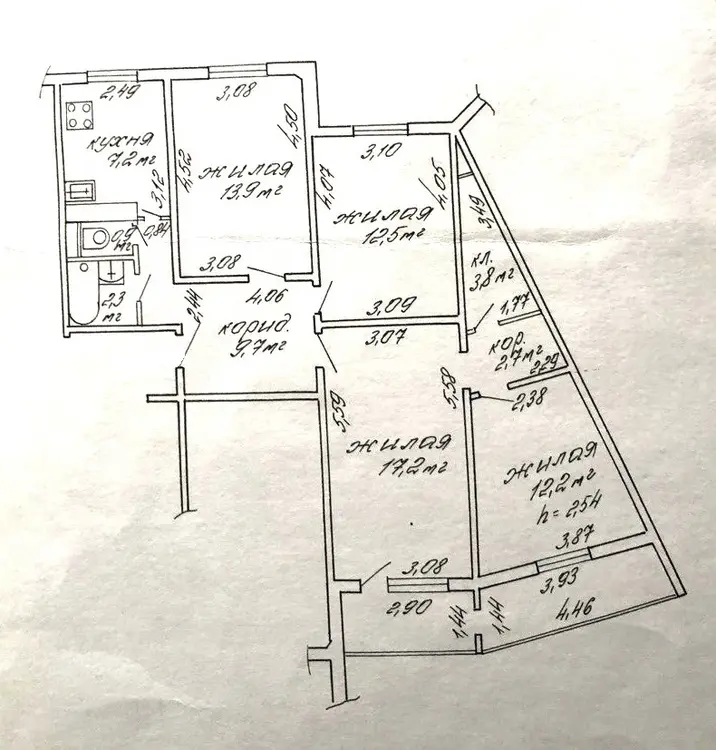 2,49
кухня
7,2 м²
3,12
0,84
0,9
м²
2,3
м²
3,08
4,50
4,52
жилая
13,9 м²
3,08
3,10
4,07
4,05
жилая
12,5 м²
3,09
3,49
кл.
3,8 м²
1,77
кор.
2,7 м²
2,29
2,38
2,44
4,06
корид.
9,7 м²
3,07
5,59
5,58
жилая
17,2 м²
3,08
жилая
12,2 м²
h = 2,54
3,87
3,93
2,90
1,44
1,44
4,46